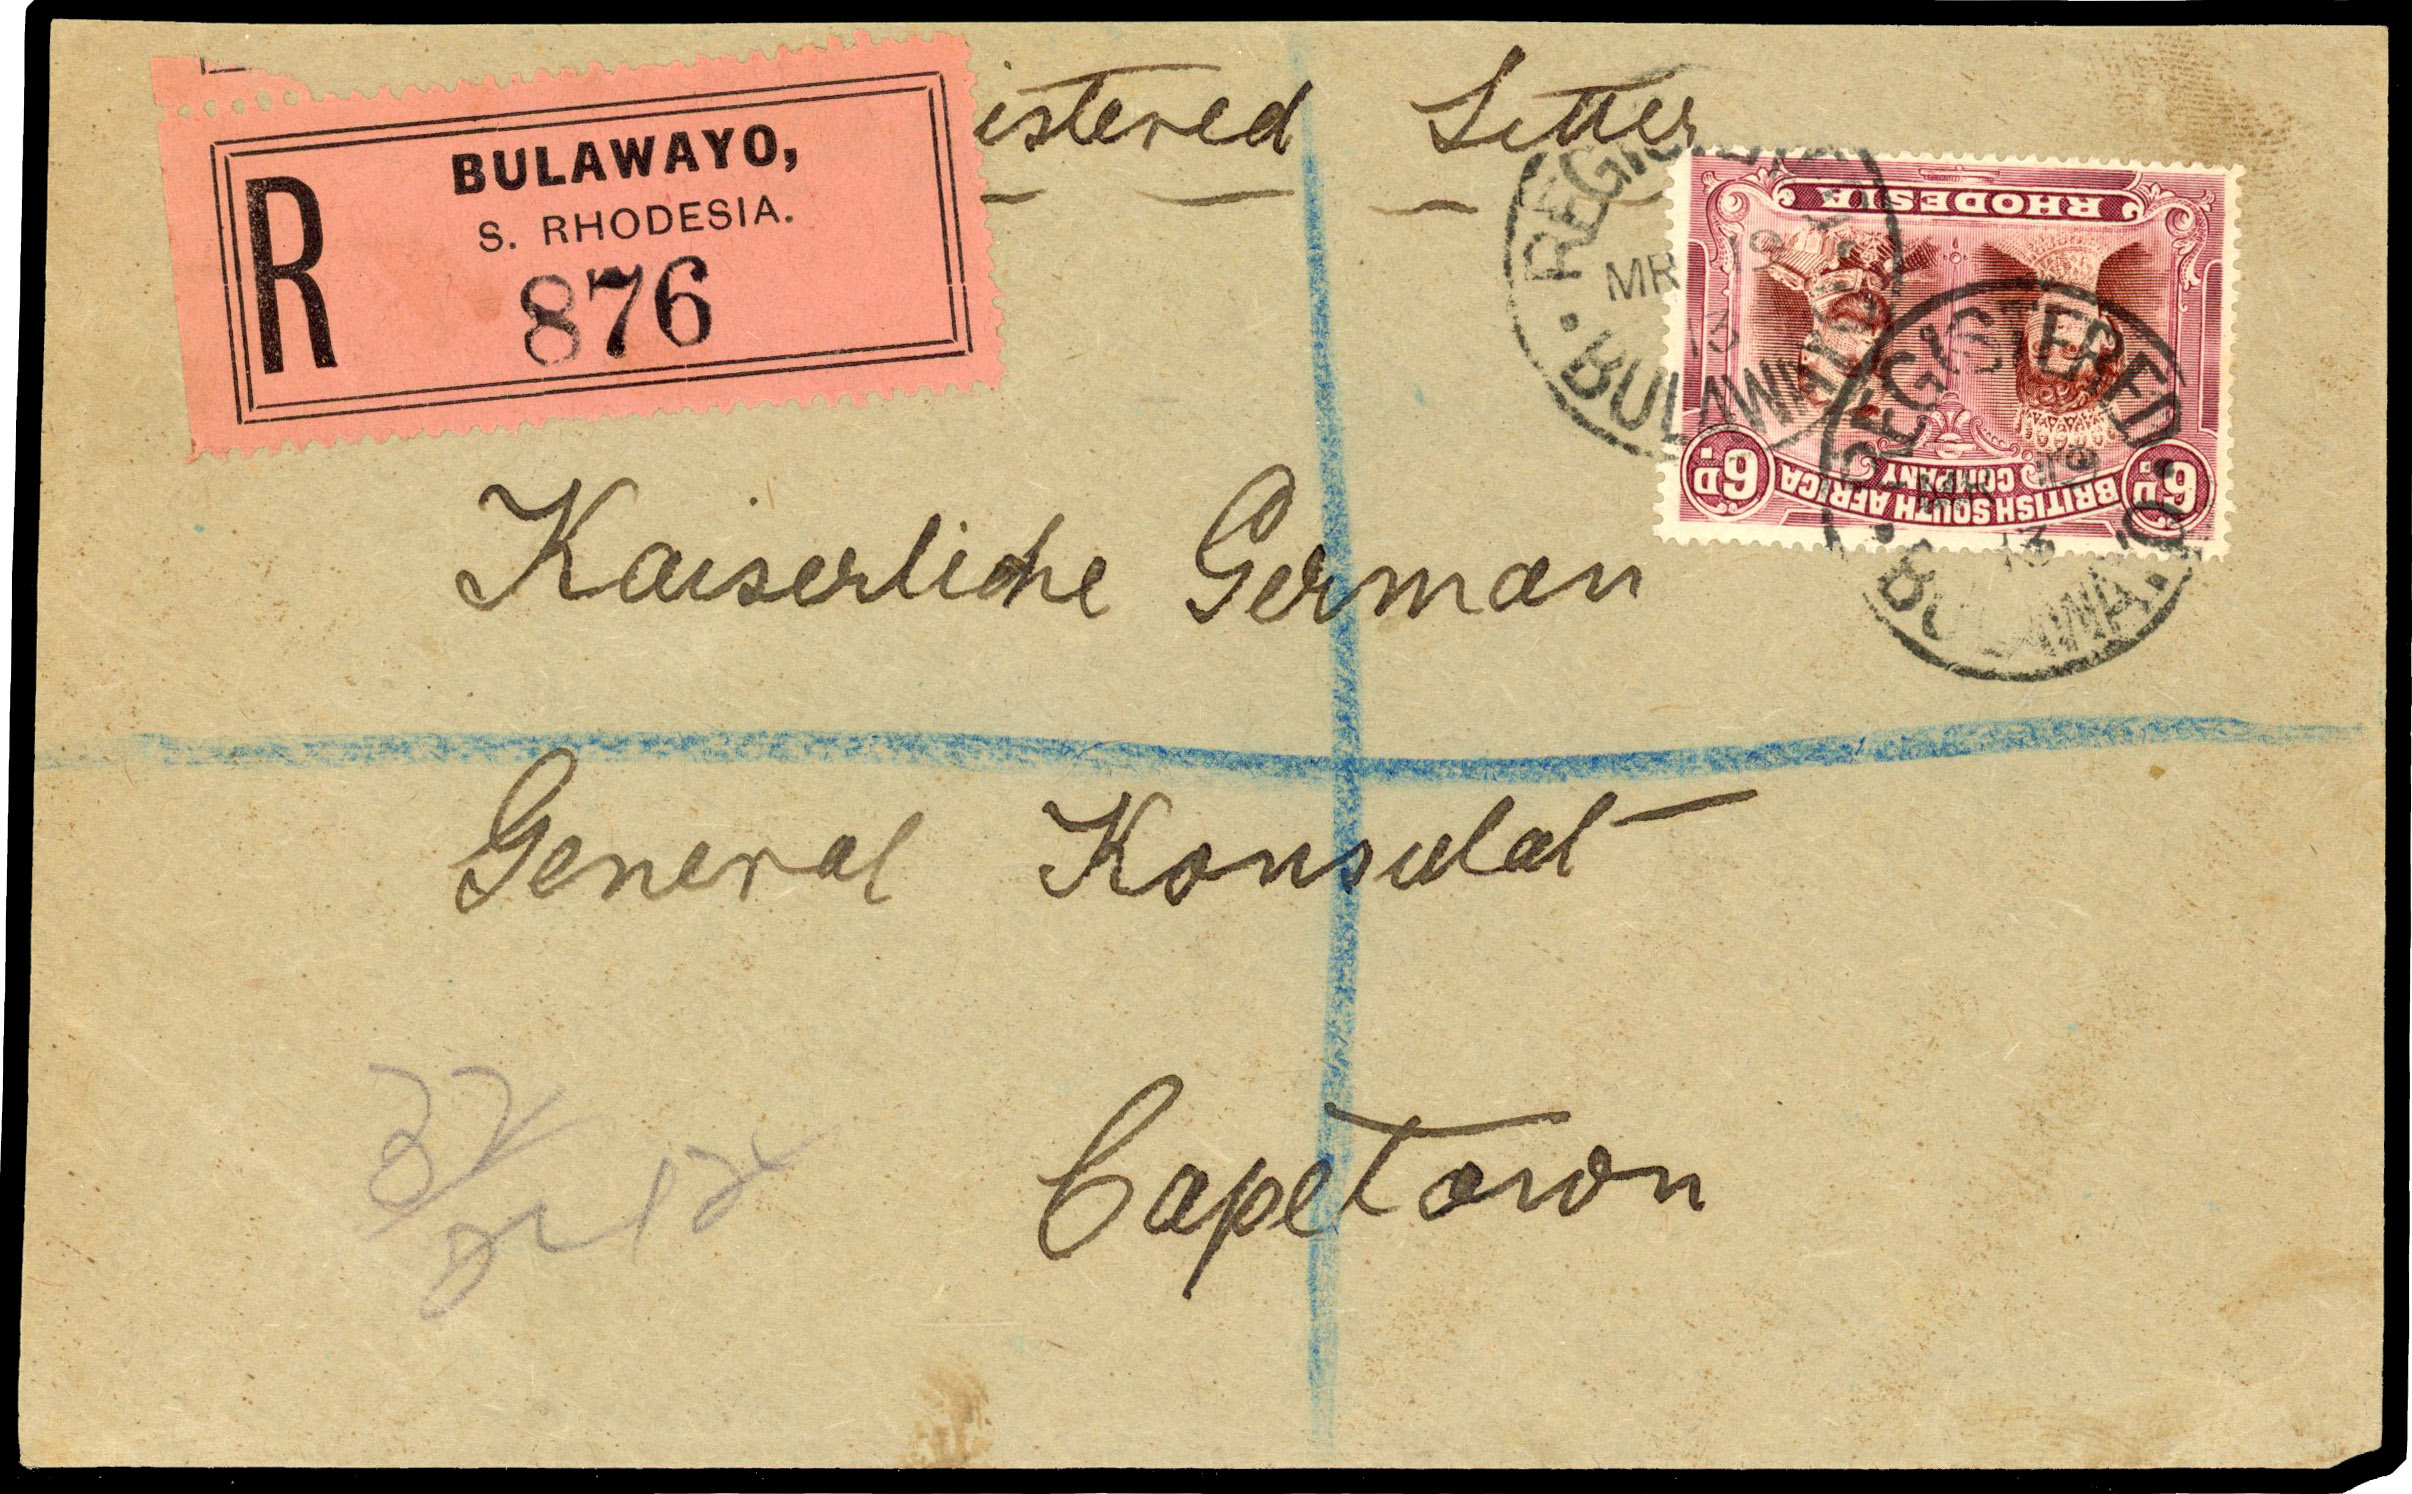 R
BULAWAYO,
S. RHODESIA.
876
istered Letter
REGISTERED
MR 19
13
BULAWAYO
RHODESIA
BRITISH SOUTH AFRICA
COMPANY
6D. 6D.
REGISTERED
MR 19
13
BULAWAYO
Kaiserliche German
General Konsulat
Capetown